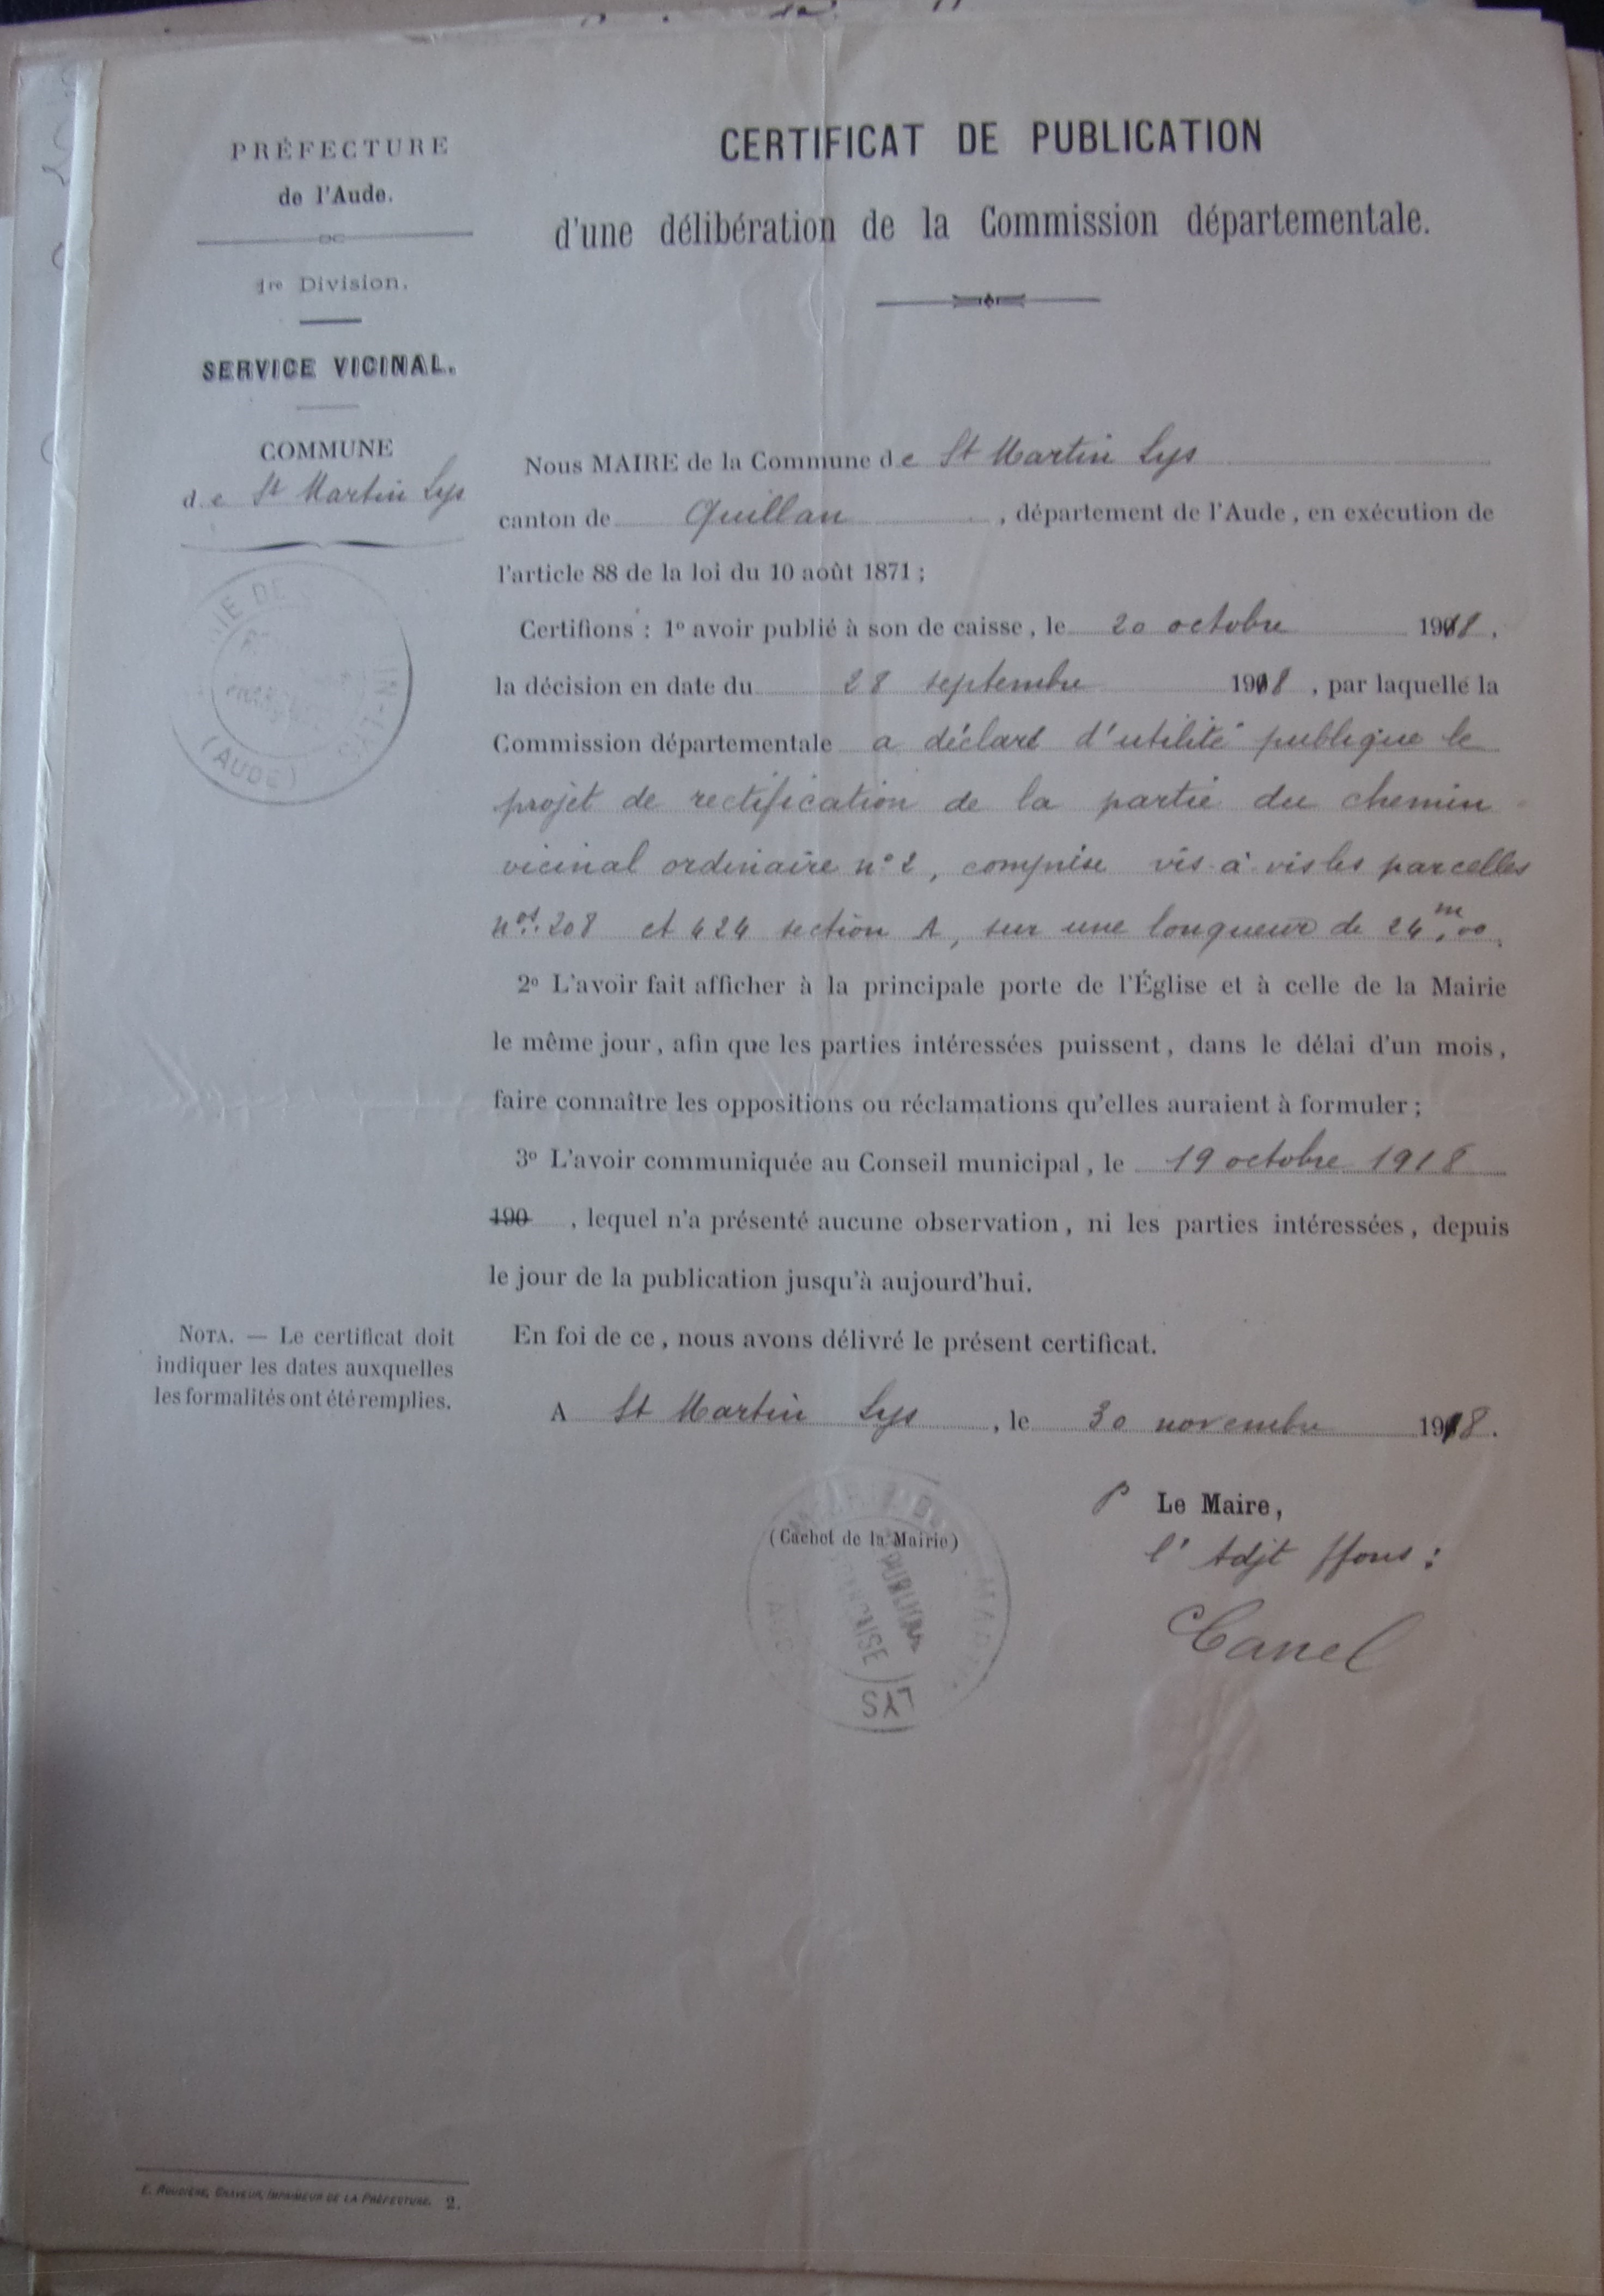 PRÉFECTURE
de l'Aude.
1re Division.
SERVICE VICINAL.
COMMUNE
de St Martin Lys
MAIRIE DE
(AUDE)
CERTIFICAT DE PUBLICATION
d'une délibération de la Commission départementale.
Nous MAIRE de la Commune de St Martin Lys
canton de Quillan, département de l'Aude, en exécution de
l'article 88 de la loi du 10 août 1871;
Certifions : 1º avoir publié à son de caisse, le 20 octobre 1918,
la décision en date du 28 septembre 1918, par laquelle la
Commission départementale a déclaré d'utilité publique le
projet de rectification de la partie du chemin
vicinal ordinaire nº 2, comprise vis-à-vis les parcelles
nos. 208 et 424 section A, sur une longueur de 24m,00.
2º L'avoir fait afficher à la principale porte de l'Église et à celle de la Mairie
le même jour, afin que les parties intéressées puissent, dans le délai d'un mois,
faire connaître les oppositions ou réclamations qu'elles auraient à formuler;
3º L'avoir communiquée au Conseil municipal, le 19 octobre 1918
190 , lequel n'a présenté aucune observation, ni les parties intéressées, depuis
le jour de la publication jusqu'à aujourd'hui.
En foi de ce, nous avons délivré le présent certificat.
A St Martin Lys, le 30 novembre 1918.
NOTA. — Le certificat doit
indiquer les dates auxquelles
les formalités ont été remplies.
P Le Maire,
(Cachet de la Mairie)
l'Adjt ffons :
FRANÇAISE
LYS
Canel
E. ROUDIÈRE, GRAVEUR, IMPRIMEUR DE LA PRÉFECTURE. 2.